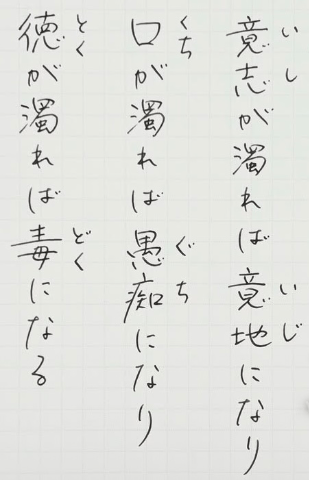 意志が濁れば意地になり
いし いじ
口が濁れば愚痴になり
くち ぐち
徳が濁れば毒になる
とく どく